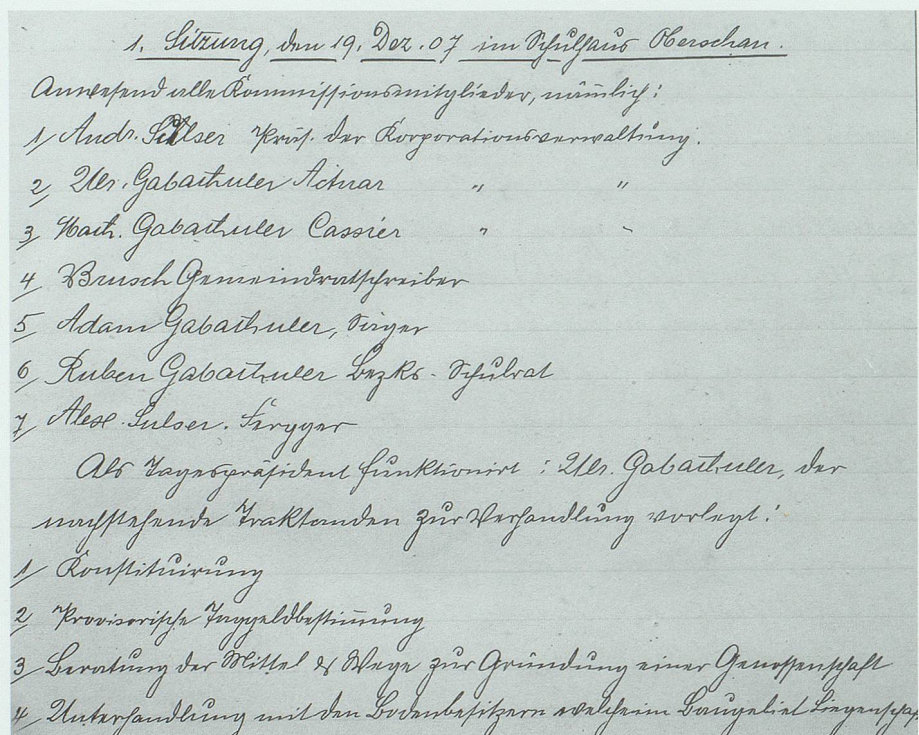 1. Sitzung, den 19. Dez. 07 im Schulhaus Oberschan.
Anwesend alle Kommissionsmitglieder, nämlich:
1/ Andr. Sulser Präs. der Korporationsverwaltung.
2/ Ulr. Gabathuler Actuar " "
3/ Math. Gabathuler Cassier " "
4/ Brusch Gemeindratschreiber
5/ Adam Gabathuler,
6/ Ruben Gabathuler Bezks. Schulrat
7/ Alex. Sulser. Fergger
Als Tagespräsident funktionirt: Ulr. Gabathuler, der
nachstehende Traktanden zur Verhandlung vorlegt:
1/ Konstituirung
2/ Provisorische Taggeldbestimmung
3/ Beratung der Mittel & Wege zur Gründung einer Genossenschaft
4/ Unterhandlung mit den Bodenbesitzern welche im Baugebiet